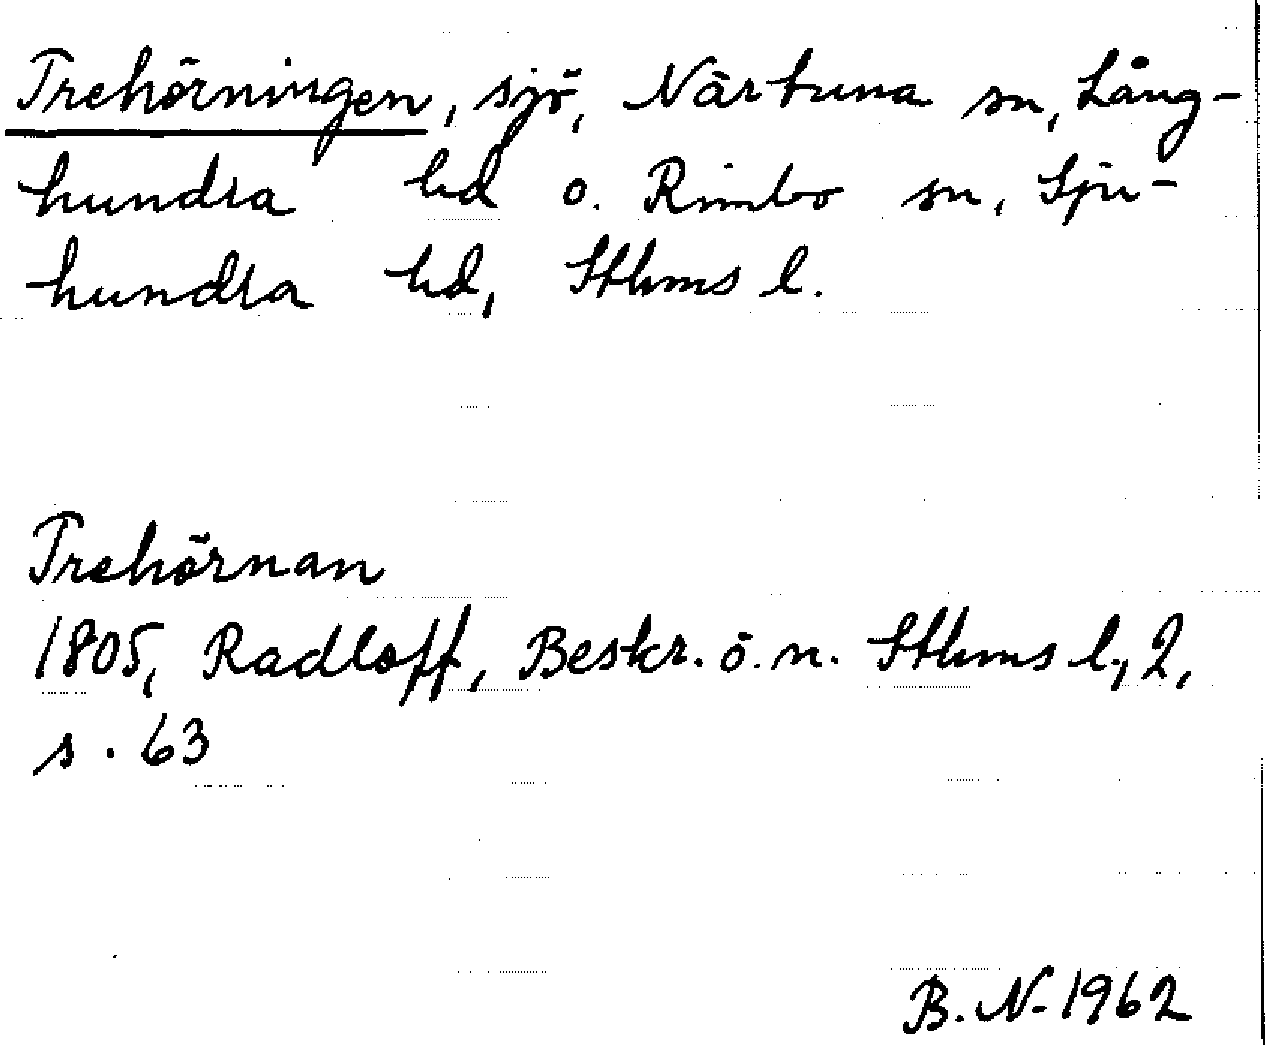 Trehörningen, sjö, Närtuna sn, Lång-
hundra hd o. Rimbo sn, Sju-
hundra hd, Sthms l.
Trehörnan
1805, Radloff, Beskr. ö. n. Sthms l, 2,
s. 63
B. N. 1962